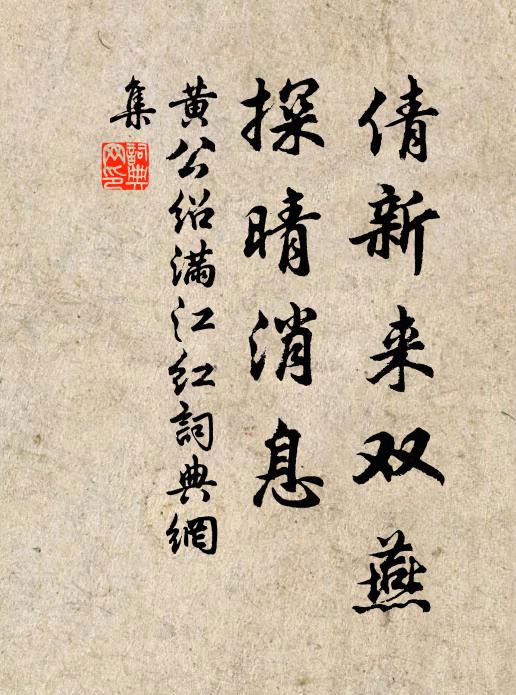 倩新来双燕
探晴消息
黄公绍满江红詞典網
集
詞典
网印